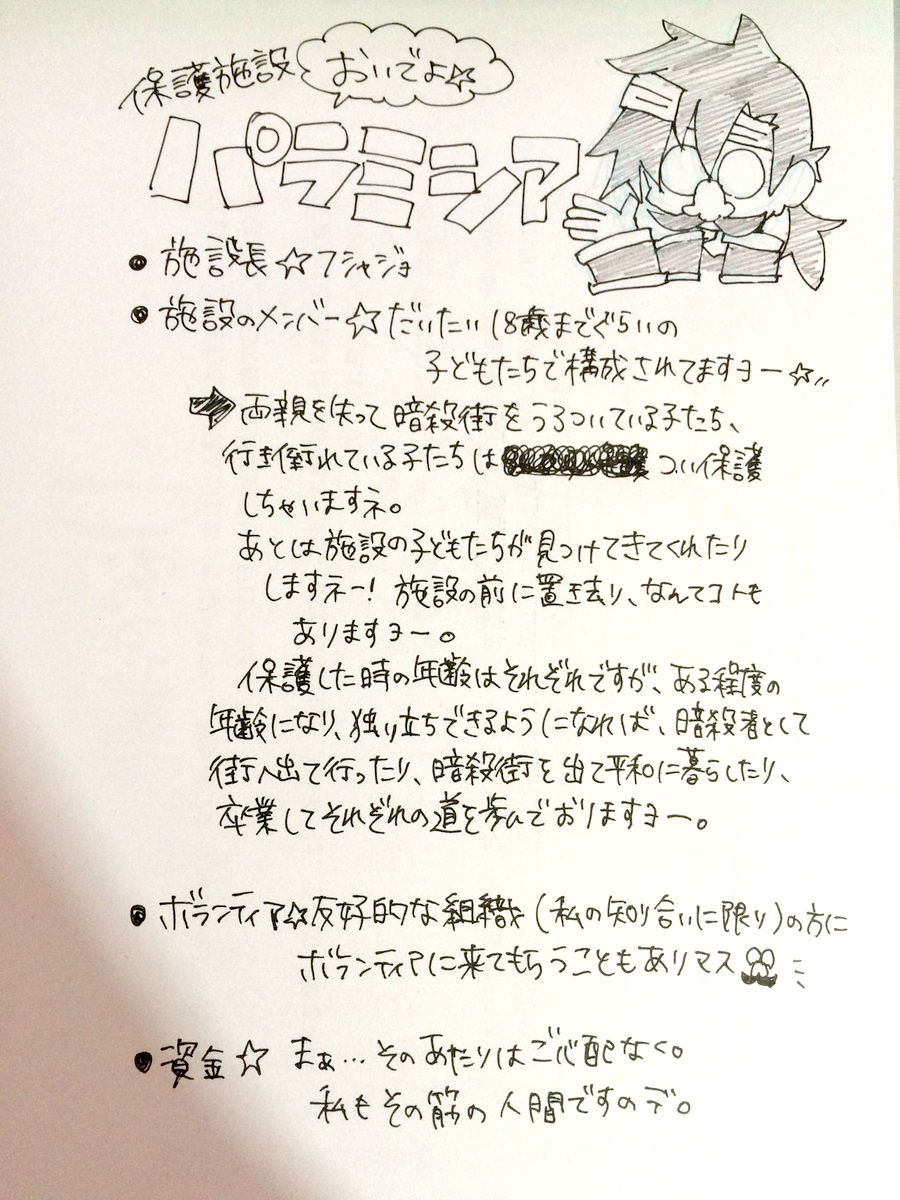 保護施設 おいでよ☆
パラミシア
● 施設長☆フシャジョ
● 施設のメンバー☆だいたい18歳までぐらいの
子どもたちで構成されてますヨー☆〃
➡両親を失って暗殺街をうろついている子たち、
行き倒れている子たちは つい保護
しちゃいますネ。
あとは施設の子どもたちが見つけてきてくれたり
しますネー! 施設の前に置き去り、なんてコトも
ありますヨー。
保護した時の年齢はそれぞれですが、ある程度の
年齢になり、独り立ちできるようになれば、暗殺者として
街へ出て行ったり、暗殺街を出て平和に暮らしたり、
卒業してそれぞれの道を歩んでおりますヨー。
● ボランティア☆友好的な組織(私の知り合いに限り)の方に
ボランティアに来てもらうこともありマス
● 資金☆ まぁ…そのあたりはご心配なく。
私もその筋の人間ですのデ。